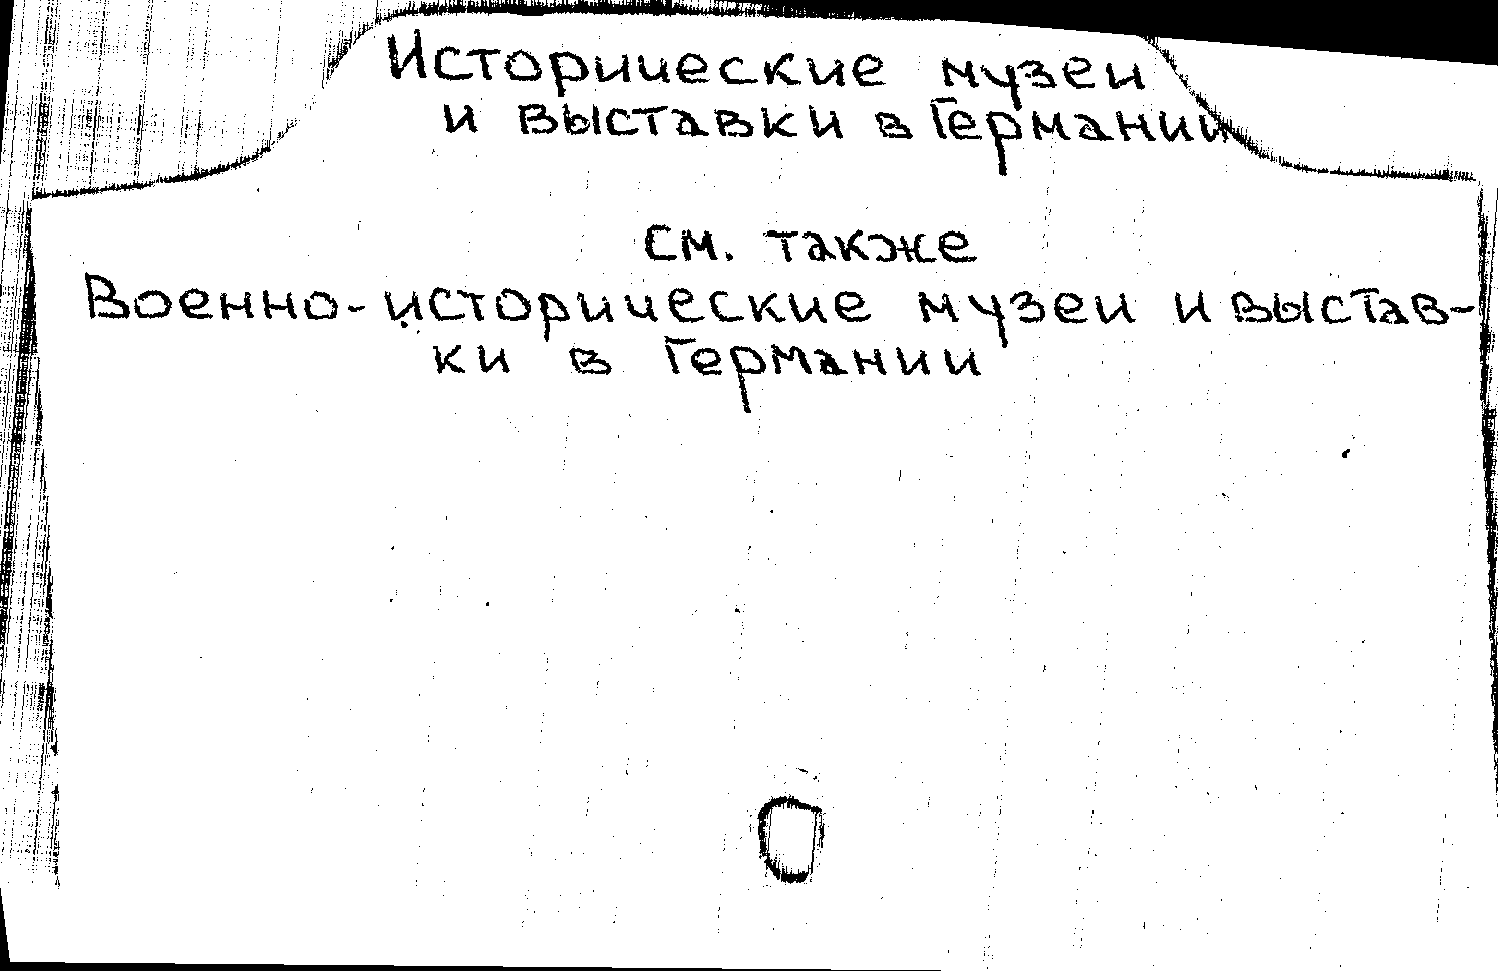 Исторические музеи
и выставки в Германии
см. также
Военно-исторические музеи и выстав-
ки в Германии